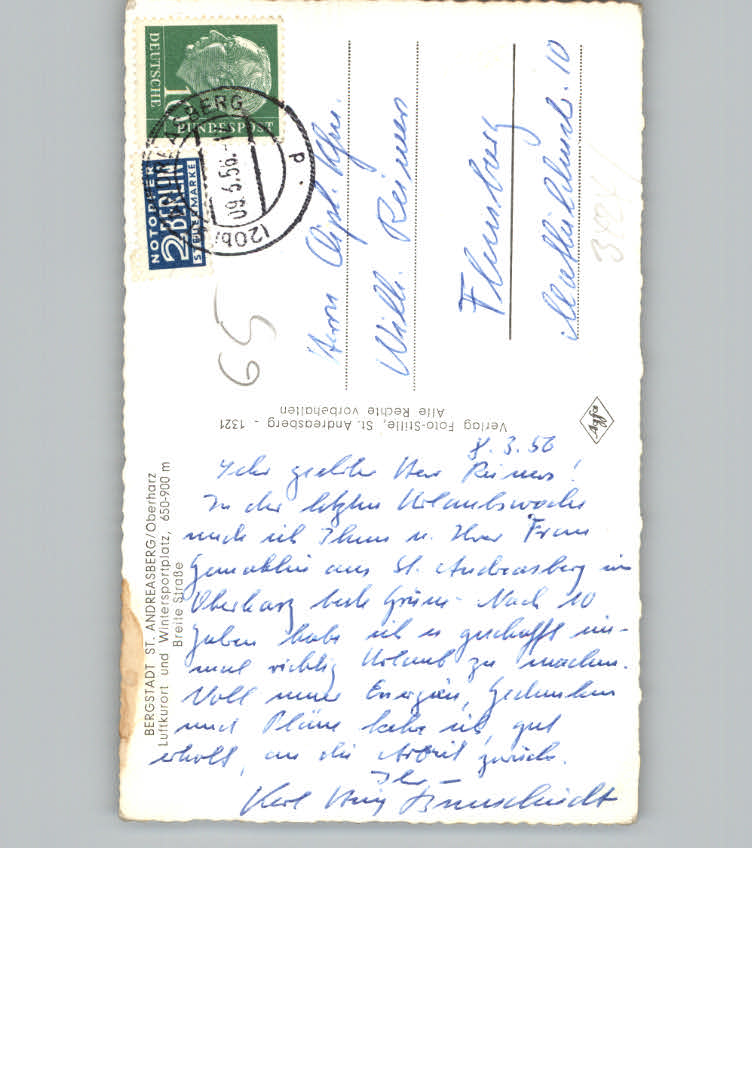 BERGSTADT ST. ANDREASBERG/Oberharz
Luftkurort und Wintersportplatz, 650-900 m
Breite Straße
8.3.56
Sehr geehrter Herr Reimers!
In der letzten Urlaubswoche
möchte ich Ihnen u. Ihrer Frau
Gemahlin aus St. Andreasberg im
Oberharz beste Grüße. Nach 10
Jahren habe ich es geschafft ein-
mal richtig Urlaub zu machen.
Voll neuer Energien, Gedanken
und Pläne kehre ich, gut
erholt, an die Arbeit zurück.
Ihr
Karl
Verlag Foto-Stille, St. Andreasberg - 1321
Alle Rechte vorbehalten
Agfa
DEUTSCHE
BUNDESPOST
10
NOTOPFER
2 BERLIN
STEUERMARKE
ANDREASBERG
09.3.56
(20b)
p
Herrn Dipl. Ing.
Wilh. Reimers
Flensburg
10
65